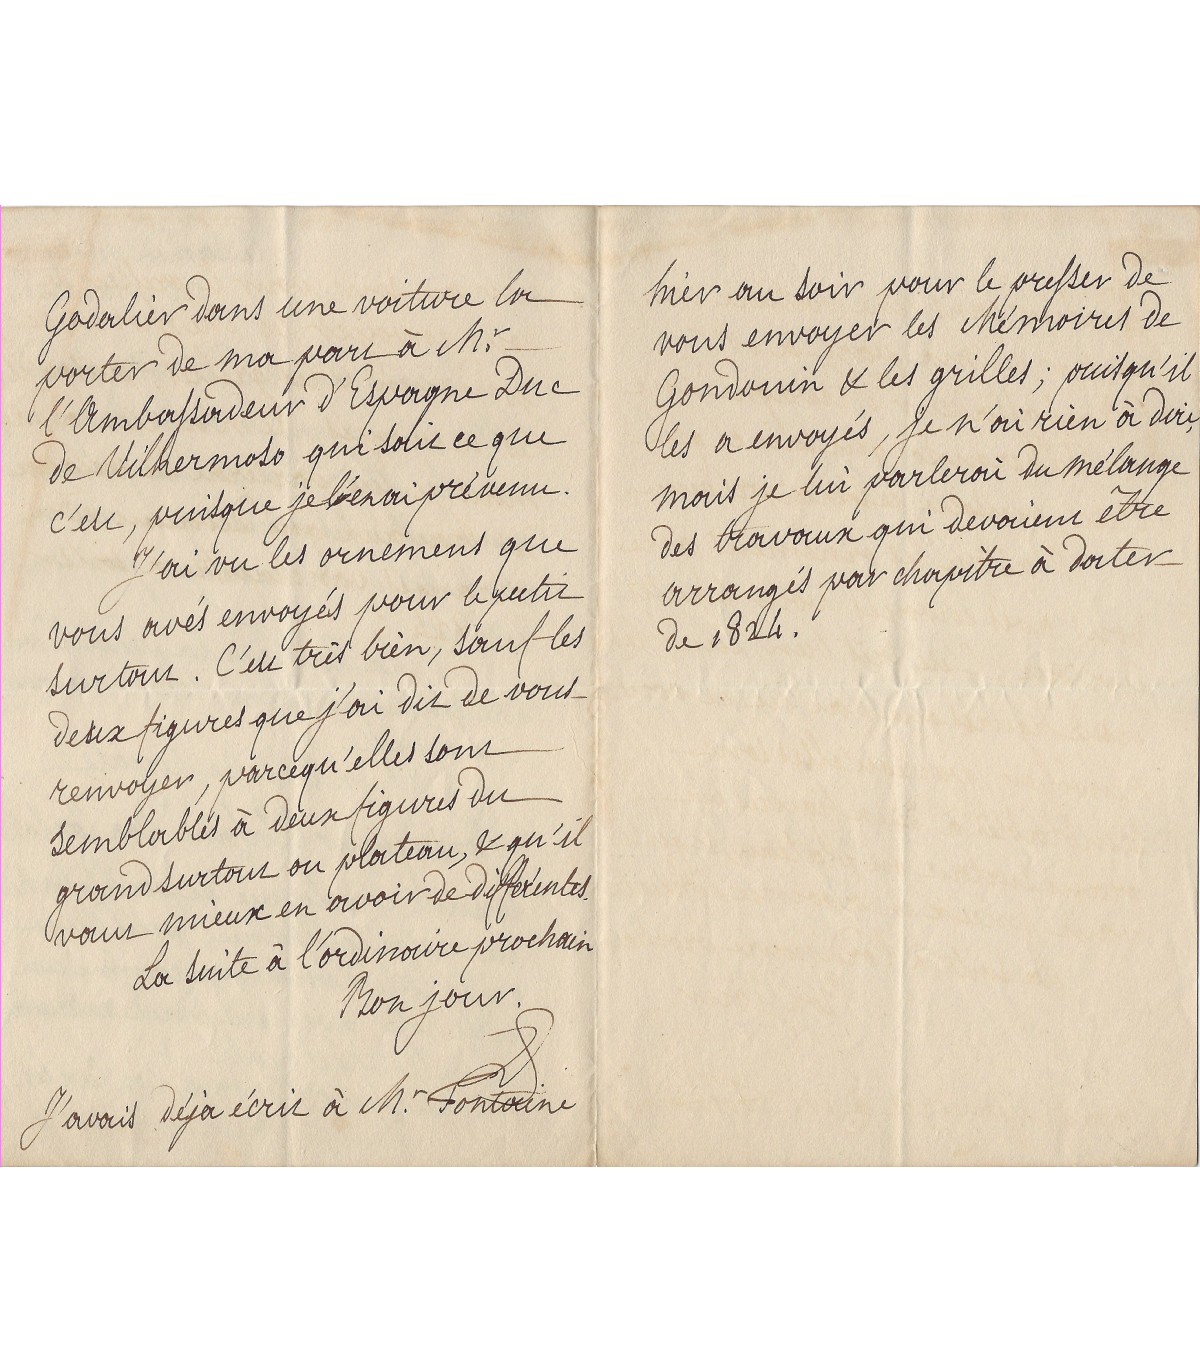 Godalier dans une voiture la
porter de ma part à Mr.
l'Ambassadeur d'Espagne Duc
de Vilhermoso qui sait ce que
c'est, puisque je l'en ai prévenu.
J'ai vu les ornemens que
vous avés envoyés pour le petit
surtout. C'est très bien, sauf les
deux figures que j'ai dit de vous
renvoyer, parcequ'elles sont
semblables à deux figures du
grand surtout ou plateau, & qu'il
vaut mieux en avoir de différentes.
La suite à l'ordinaire prochain
Bon jour.
J'avais déja écrit à Mr. Fontaine
hier au soir pour le presser de
vous envoyer les Mémoires de
Gondouin & les grilles; puisqu'il
les a envoyés, je n'ai rien à dire,
mais je lui parlerai du mélange
des travaux qui devaient être
arrangés par chapitre à dater
de 1824.